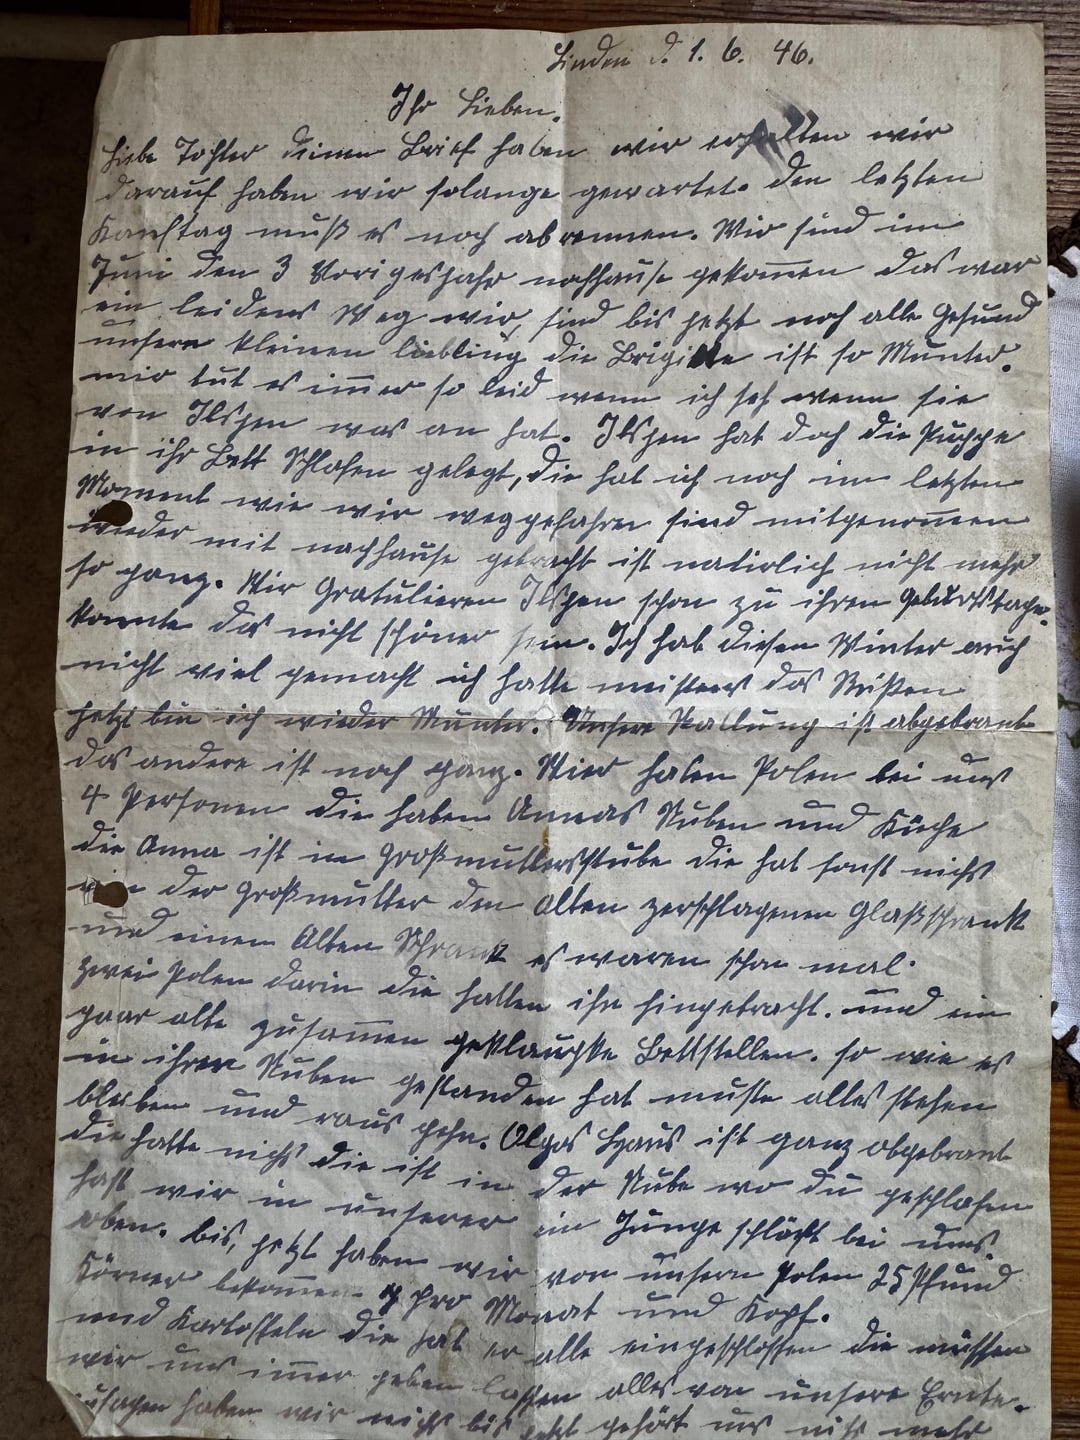 Linden d. 1. 6. 46.
Ihr Lieben.
Liebe Tochter deinen Brief haben wir erhalten wir
darauf haben wir solange gewartet. den letzten
muß es noch ab. Wir sind im
Juni den 3 Vorigesjahr nachhause gekommen das war
ein leidens Weg wir, sind bis jetzt noch alle Gesund
unsern kleinen liebling die Brigitte ist so Munter.
mir tut es immer so leid wenn ich seh wenn sie
von Ilschen was an hat. Ilschen hat doch die Puppe
in ihr Bett Schlafen gelegt, die hat ich noch im letzten
Moment wie wir weggefahren sind mitgenommen
wieder mit nachhause gebracht ist natirlich nicht mehr
so ganz. Wir Gratulieren Ilschen schon zu ihren Geburtstage.
konnte das nicht schöner sein. Ich hab diesen Winter auch
nicht viel gemacht ich hatte meistens das
jetzt bin ich wieder Munter. Unsere Stallung ist abgebrant
das andere ist noch ganz. Wier haben Polen bei uns
4 Personen die haben Annas Stuben und Küche
die Anna ist in Großmuttersstube die hat sonst nichs
wie der Großmutter den Alten zerschlagenen Glaßschrank
und einen Alten Schrank es waren schon mal
zwei Polen darin die hatten ihr hingebracht. und ein
paar alte zusammen Bettstellen. so wie es
in ihren Stuben gestanden hat muste alles stehen
bleiben und raus gehn. Olgas Haus ist ganz abgebrant
die hatte nichs die ist in der Stube wo du geschlafen
hast wir in unserer ein Junge schläft bei uns.
oben. bis, jetzt haben wir von unsern Polen 25 Pfund
Körner bekommen pro Monat und Kopf.
und Kartoffeln die hat er alle eingeschlossen die müssen
wir uns immer geben lassen alles von unsere Ernte.
zusagen haben wir nichs bis jetzt gehört uns nichs mehr